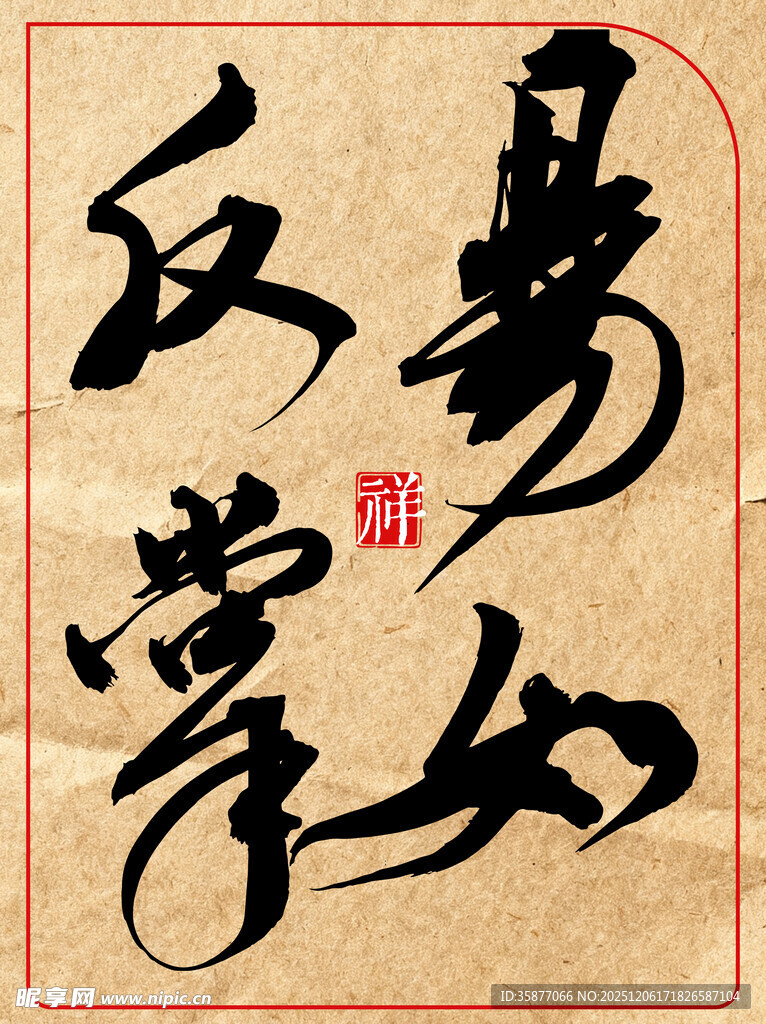 易如
反掌
祥
昵享网 www.nipic.cn
ID:35877066 NO:20251206171826587104